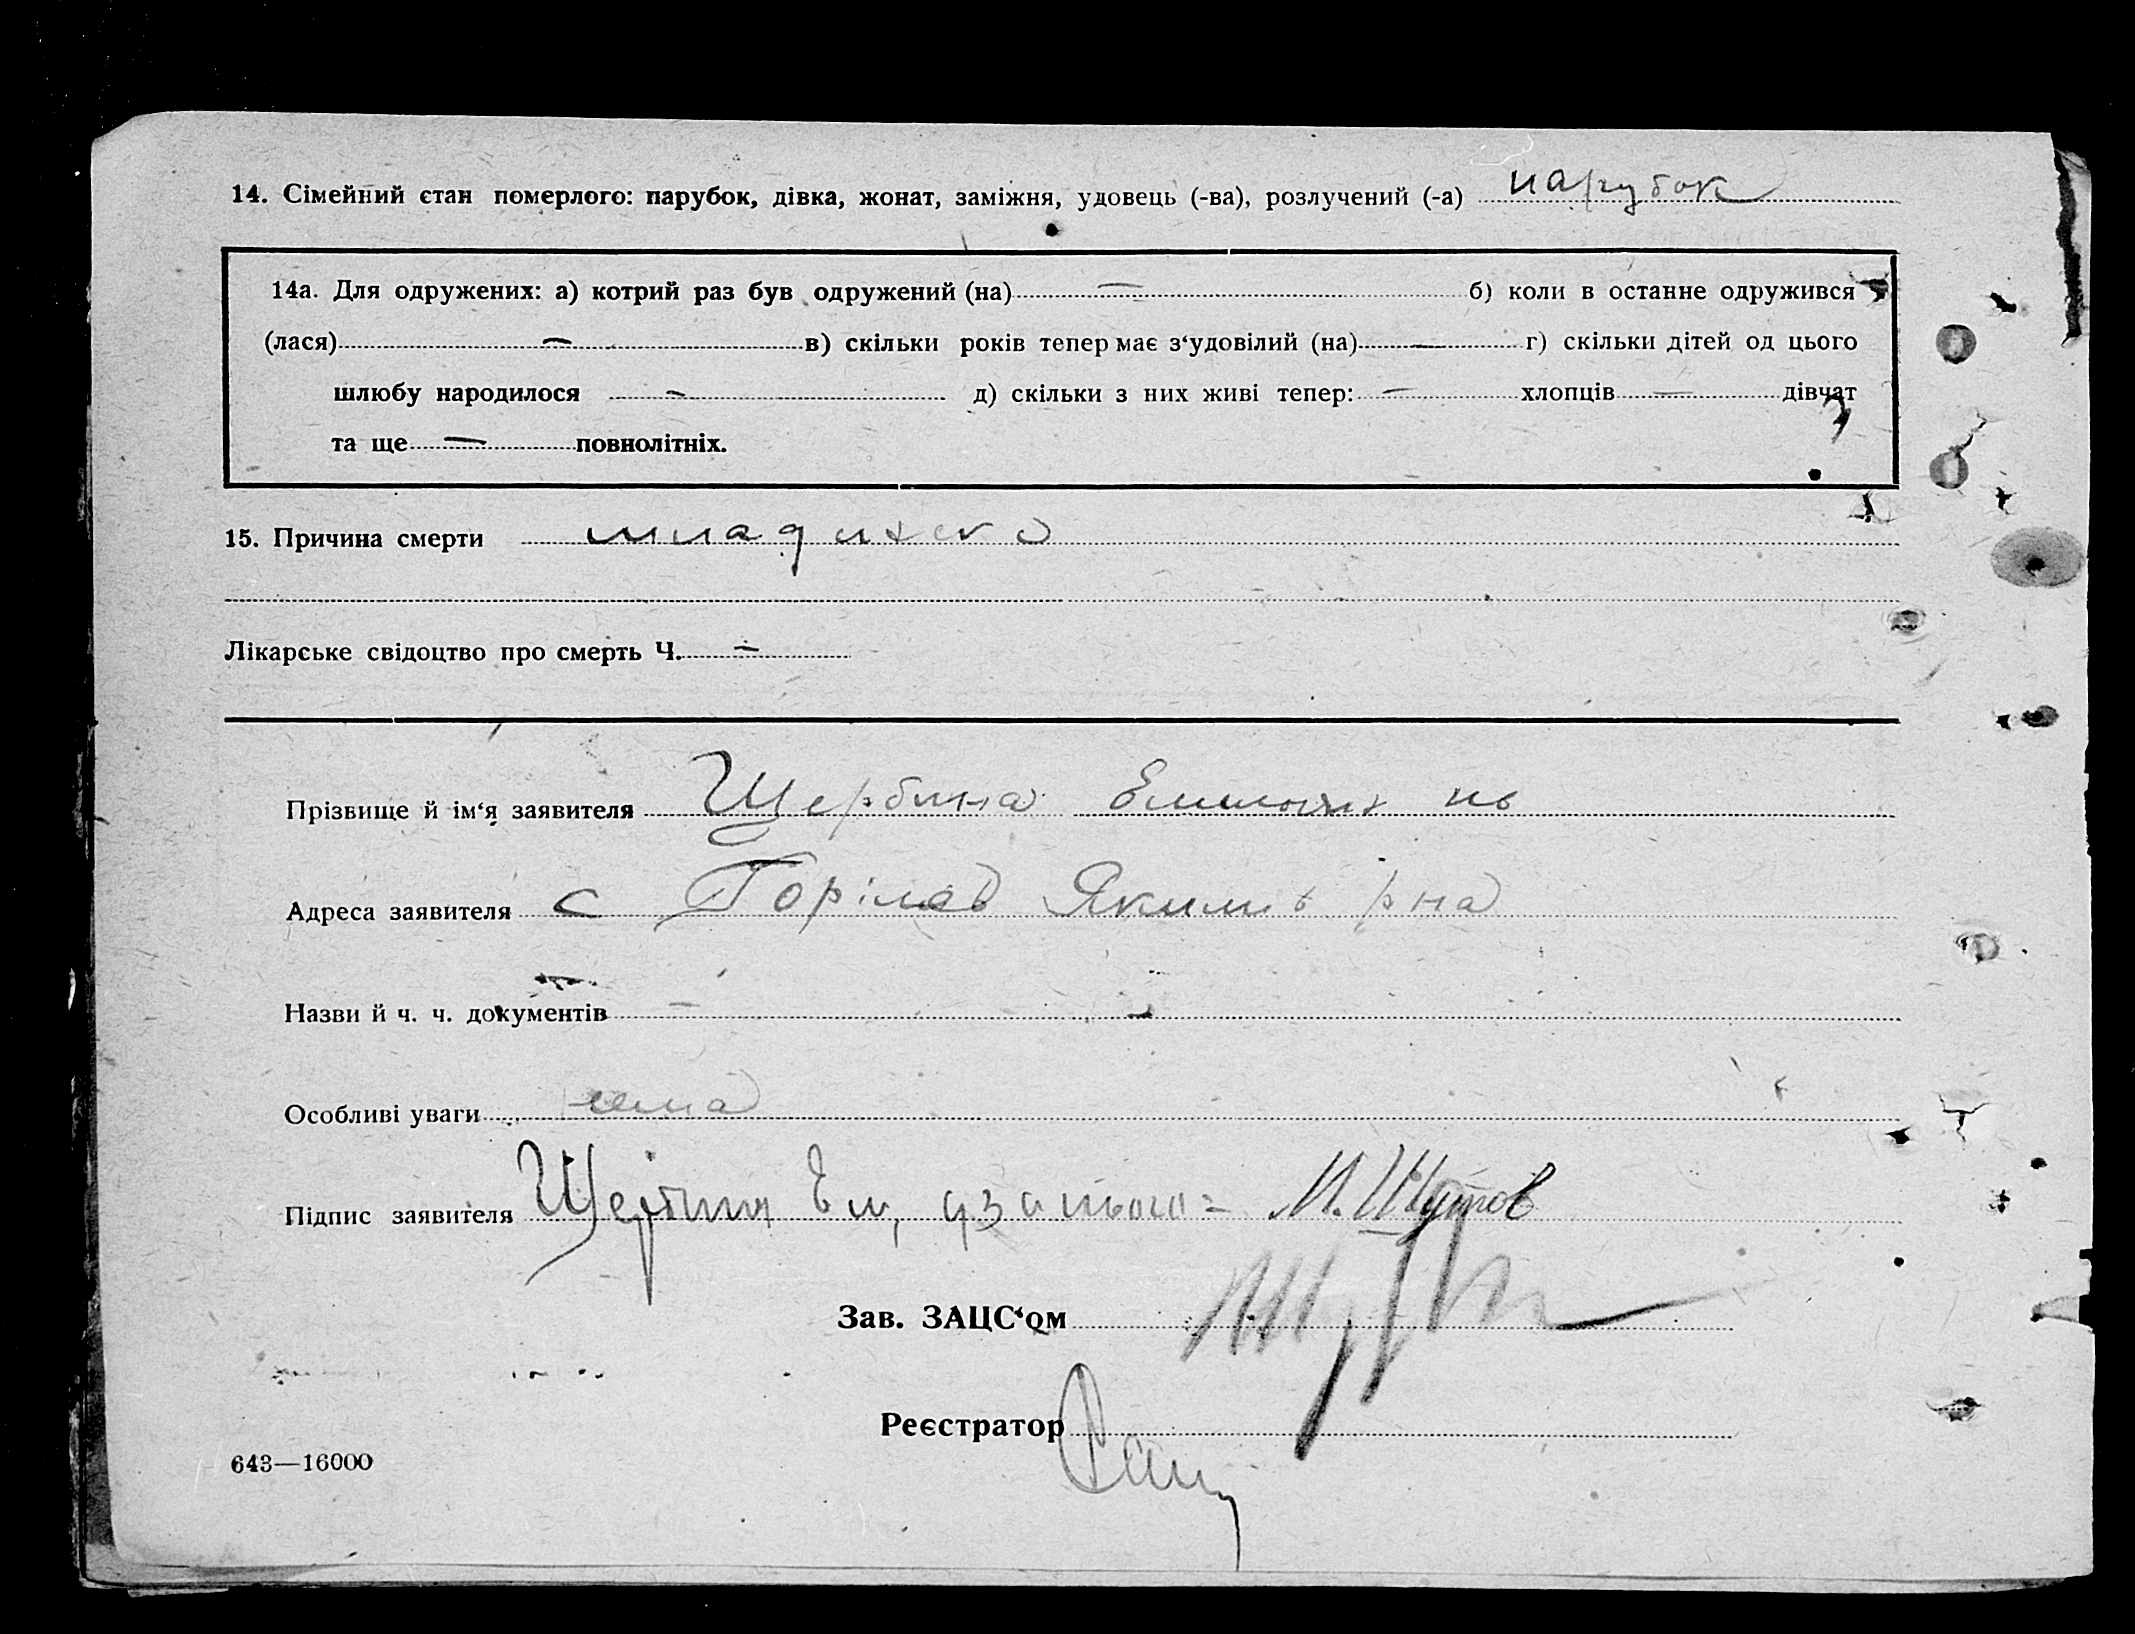 14. Сімейний стан померлого: парубок, дівка, жонат, заміжня, удовець (-ва), розлучений (-а) парубок
14а. Для одружених: а) котрий раз був одружений (на) — б) коли в останне одружився
(лася) — в) скільки років тепер має з‘удовілий (на) — г) скільки дітей од цього
шлюбу народилося — д) скільки з них живі тепер: — хлопців — дівчат
та ще — повнолітніх.
15. Причина смерти
Лікарське свідоцтво про смерть Ч. —
Прізвище й ім‘я заявителя Щербина
Адреса заявителя с
Назви й ч. ч. документів —
Особливі уваги нема
Підпис заявителя Щербина Ем, М. Шутов
Зав. ЗАЦС‘ом
Реєстратор
643—16000